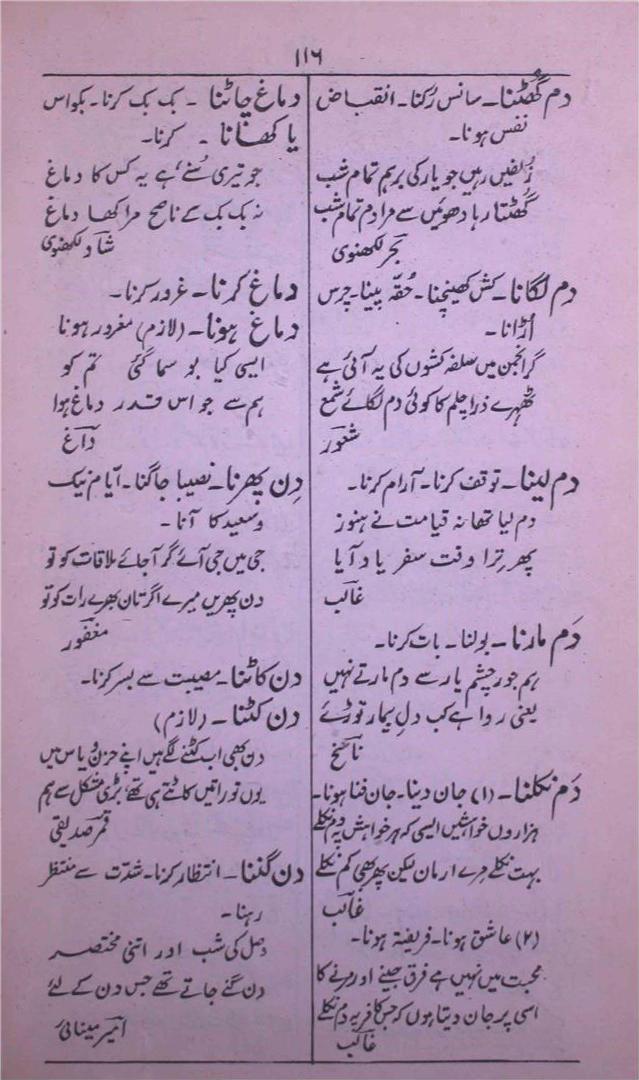 ۱۱۶
دم گھُٹنا۔ سانس رُکنا۔ انقباض
نفس ہونا۔
زلفیں رہیں جو یار کی برہم تمام شب
گھُٹتا رہا دھوئیں سے مرا دم تمام شب
بحر لکھنوی
دم لگانا۔ کش کھینچنا۔ حُقّہ پینا۔ چرس
اُڑانا۔
گر انجمن میں سلفہ کشوں کی یہ آئی ہے
ٹھہرے ذرا چلم کا کوئی دم لگائے شمع
شعور
دم لینا۔ توقف کرنا۔ آرام کرنا۔
دم لیا تھا نہ قیامت نے ہنوز
پھر ترا وقت سفر یاد آیا
غالب
دَم مارنا۔ بولنا۔ بات کرنا۔
ہم جورِ چشم یار سے دم مارتے نہیں
یعنی روا ہے کب دلِ بیمار توڑیے
ناسخ
دَم نکلنا۔ (۱) جان دینا۔ جان فنا ہونا۔
ہزاروں خواہشیں ایسی کہ ہر خواہش پہ دم نکلے
بہت نکلے مرے ارمان لیکن پھر بھی کم نکلے
غالب
(۲) عاشق ہونا۔ فریفتہ ہونا۔
محبت میں نہیں ہے فرق جینے اور مرنے کا
اسی پر جان دیتا ہوں کہ جس کافر پہ دم نکلے
غالب
دماغ چاٹنا ۔ بک بک کرنا۔ بکواس
یا کھانا ۔ کرنا۔
جو تیری سُنے، ہے یہ کس کا دماغ
نہ بک بک کے ناصح مرا کھا دماغ
شاد لکھنوی
دماغ کرنا۔ غرور کرنا۔
دماغ ہونا۔ (لازم) مغرور ہونا
ایسی کیا بو سما گئی تم کو
ہم سے جو اس قدر دماغ ہوا
داغ
دِن پھرنا۔ نصیبا جاگنا۔ ایام نیک
و سعید کا آنا ۔
جی میں جی آئے گر آجائے ملاقات کو تو
دن پھریں میرے اگر تان بھرے رات کو تو
مغفور
دن کاٹنا۔ مصیبت سے بسر کرنا۔
دن کٹنا ۔ (لازم)
دن بھی اب کٹنے لگے ہیں اپنے حزن و یاس میں
یوں تو راتیں کاٹتے ہی تھے بڑی مشکل سے ہم
قمر صدیقی
دن گننا۔ انتظار کرنا۔ شدّت سے منتظر
رہنا۔
وصل کی شب اور اتنی مختصر
دن گنے جاتے تھے جس دن کے لئے
امیر مینائی